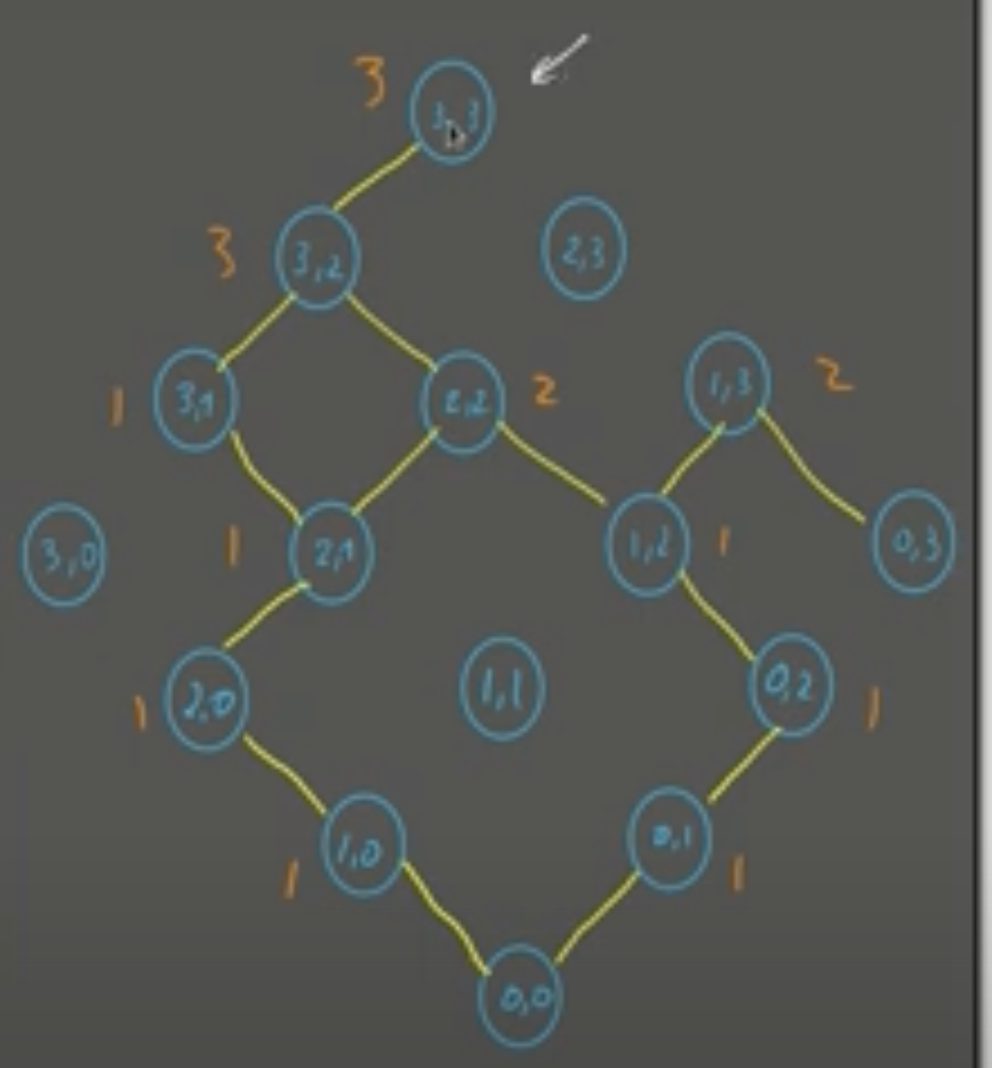 3
3,3
3
3,2
2,3
1
3,1
2,2
2
1,3
2
3,0
1
2,1
1,2
1
0,3
1
2,0
1,1
0,2
1
1
1,0
0,1
1
0,0